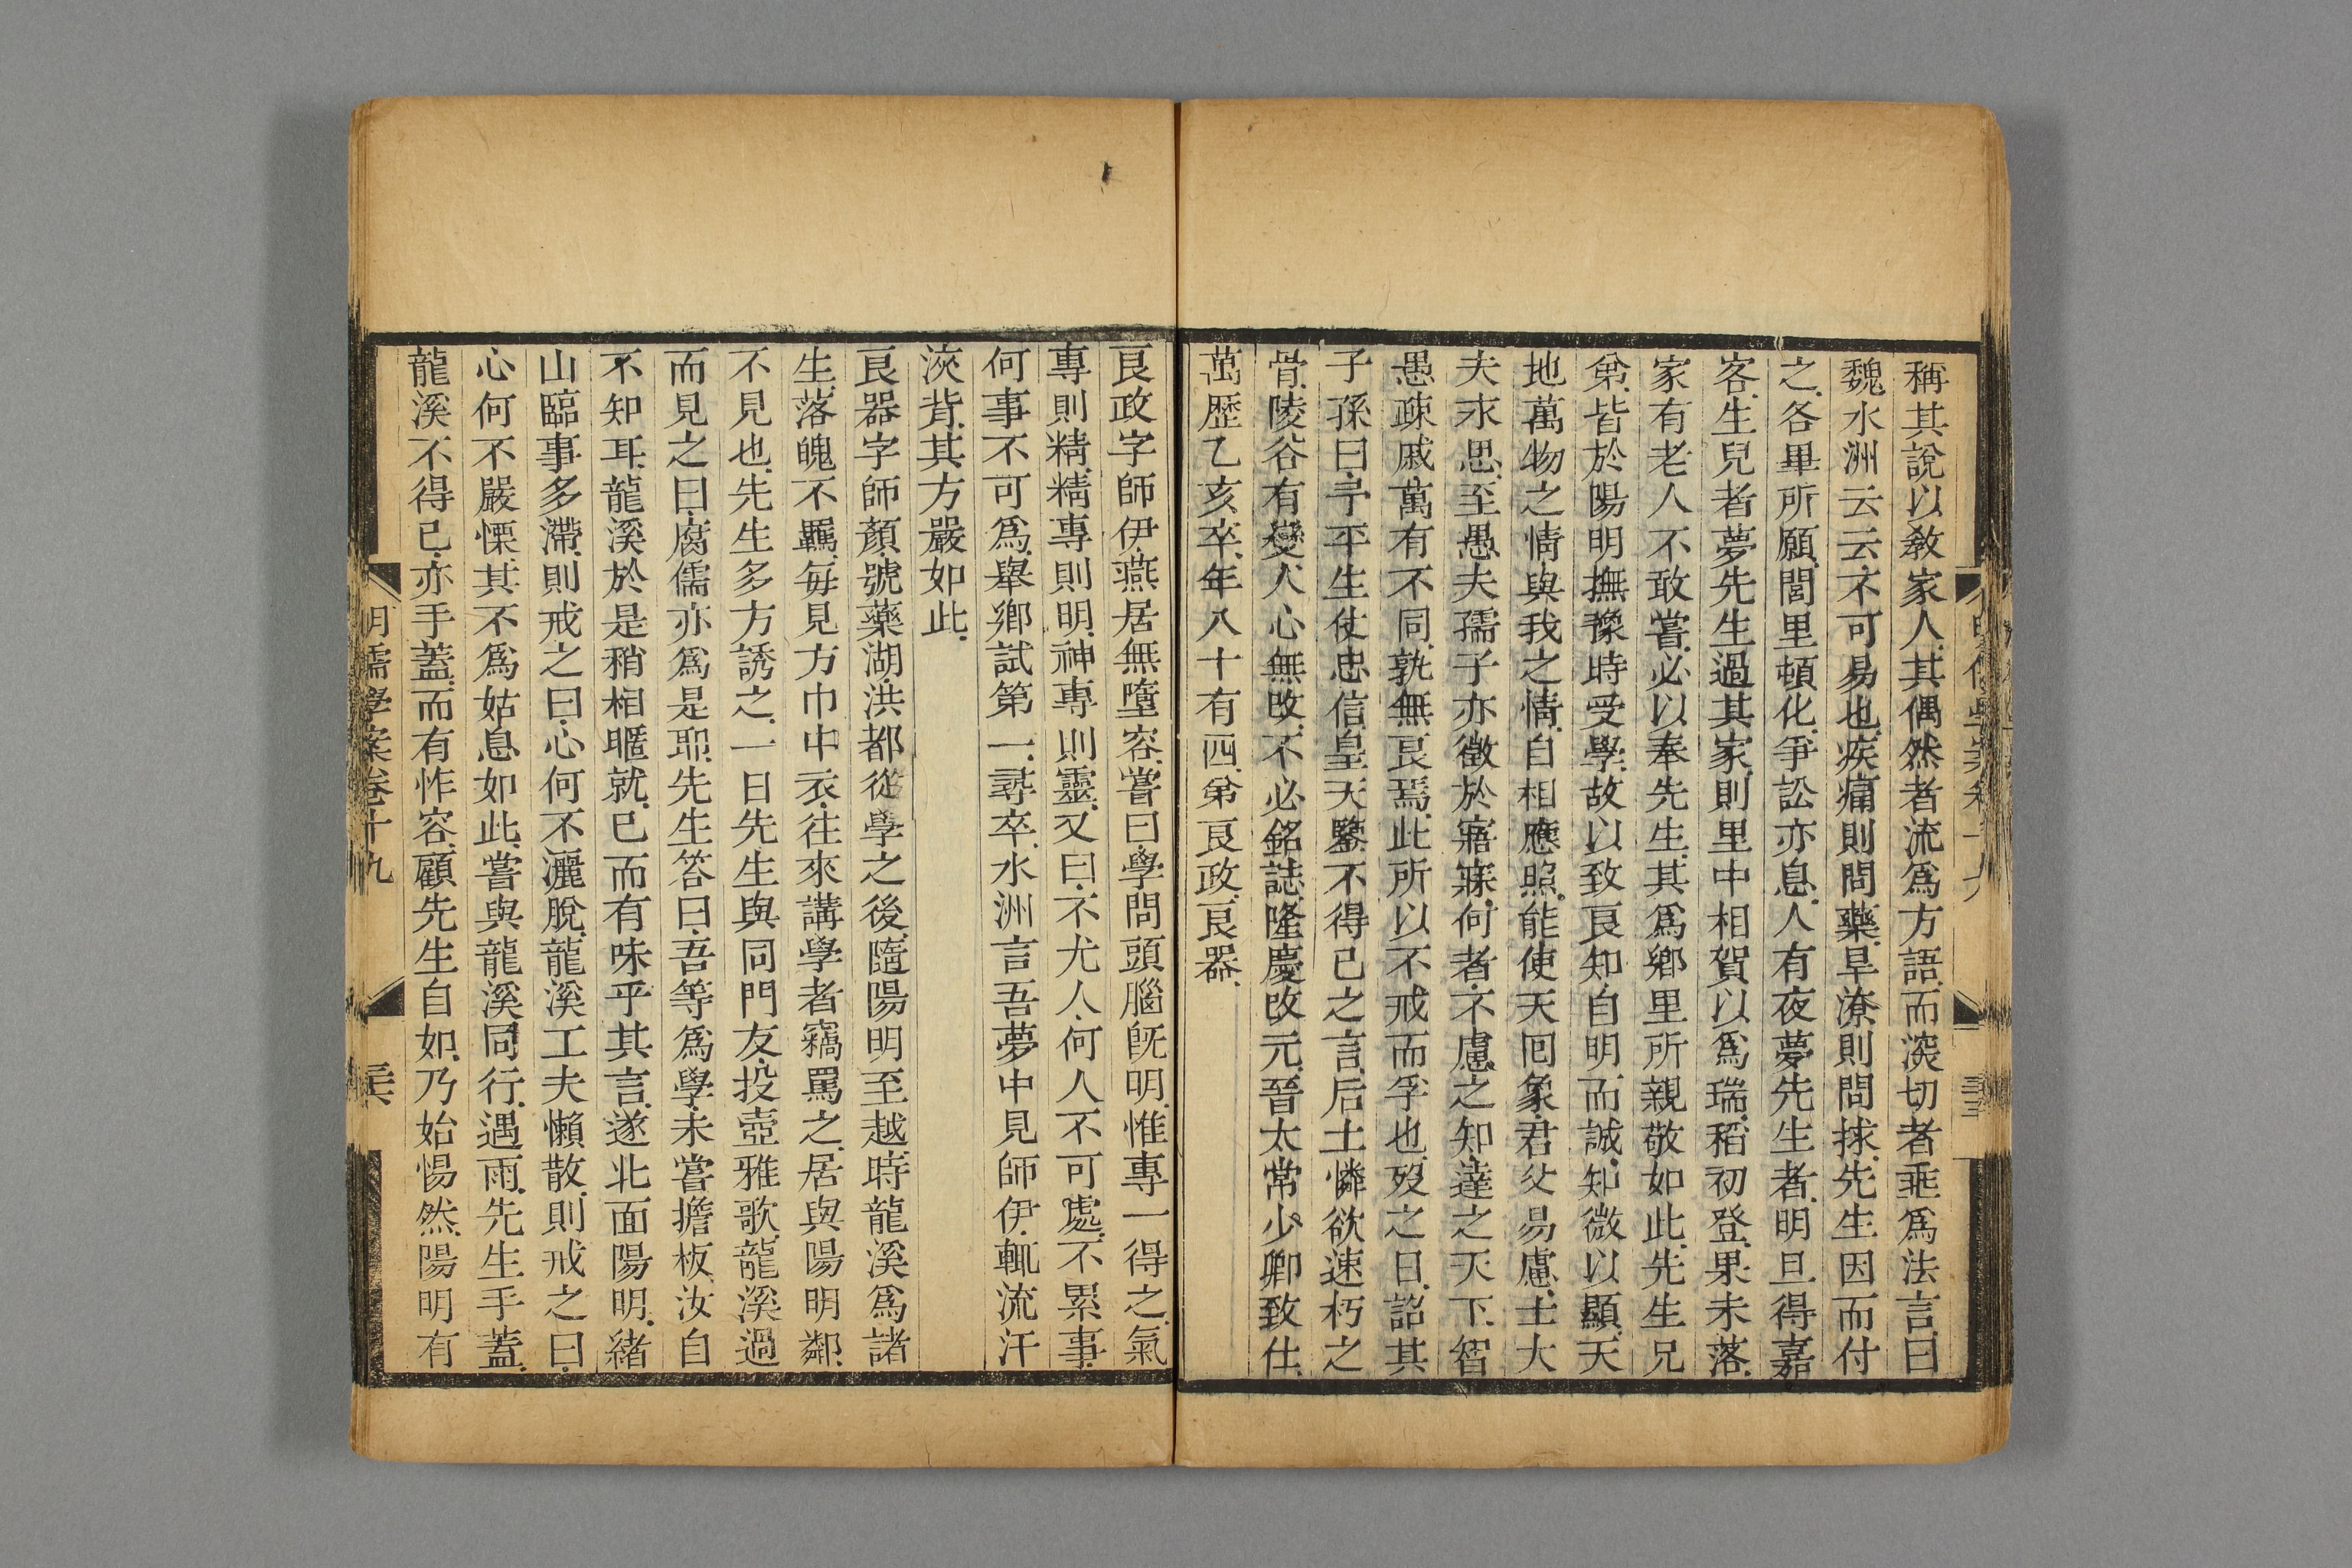 稱其說以敎家人其偶然者流爲方語而深切者垂爲法言曰
魏水洲云云不可易也疾痛則問藥旱潦則問捄先生因而付
之各畢所願閭里頓化爭訟亦息人有夜夢先生者明旦得嘉
客生兒者夢先生過其家則里中相賀以爲瑞稻初登果未落
家有老人不敢嘗必以奉先生其爲鄉里所親敬如此先生兄
弟皆於陽明撫豫時受學故以致良知自明而誠知微以顯天
地萬物之情與我之情自相應照能使天囘象君父易慮士大
夫永思至愚夫孺子亦徵於寤寐何者不慮之知達之天下智
愚疎戚萬有不同孰無良焉此所以不戒而孚也歿之日詔其
子孫曰予平生仗忠信皇天鑒不得已之言后土憐欲速朽之
骨陵谷有變人心無改不必銘誌隆慶改元晉太常少卿致仕
萬歷乙亥卒年八十有四弟良政良器
良政字師伊燕居無墮容嘗曰學問頭腦旣明惟專一得之氣
專則精精專則明神專則靈又曰不尤人何人不可處不累事
何事不可爲舉鄉試第一尋卒水洲言吾夢中見師伊輒流汗
浹背其方嚴如此
良器字師顏號藥湖洪都從學之後隨陽明至越時龍溪爲諸
生落魄不羈每見方巾中衣往來講學者竊罵之居與陽明鄰
不見也先生多方誘之一日先生與同門友投壺雅歌龍溪過
而見之曰腐儒亦爲是耶先生答曰吾等爲學未嘗擔板汝自
不知耳龍溪於是稍相暱就已而有味乎其言遂北面陽明緒
山臨事多滯則戒之曰心何不灑脫龍溪工夫懶散則戒之曰
心何不嚴慄其不爲姑息如此嘗與龍溪同行遇雨先生手蓋
龍溪不得已亦手蓋而有怍容顧先生自如乃始惕然陽明有
明儒學案卷十九